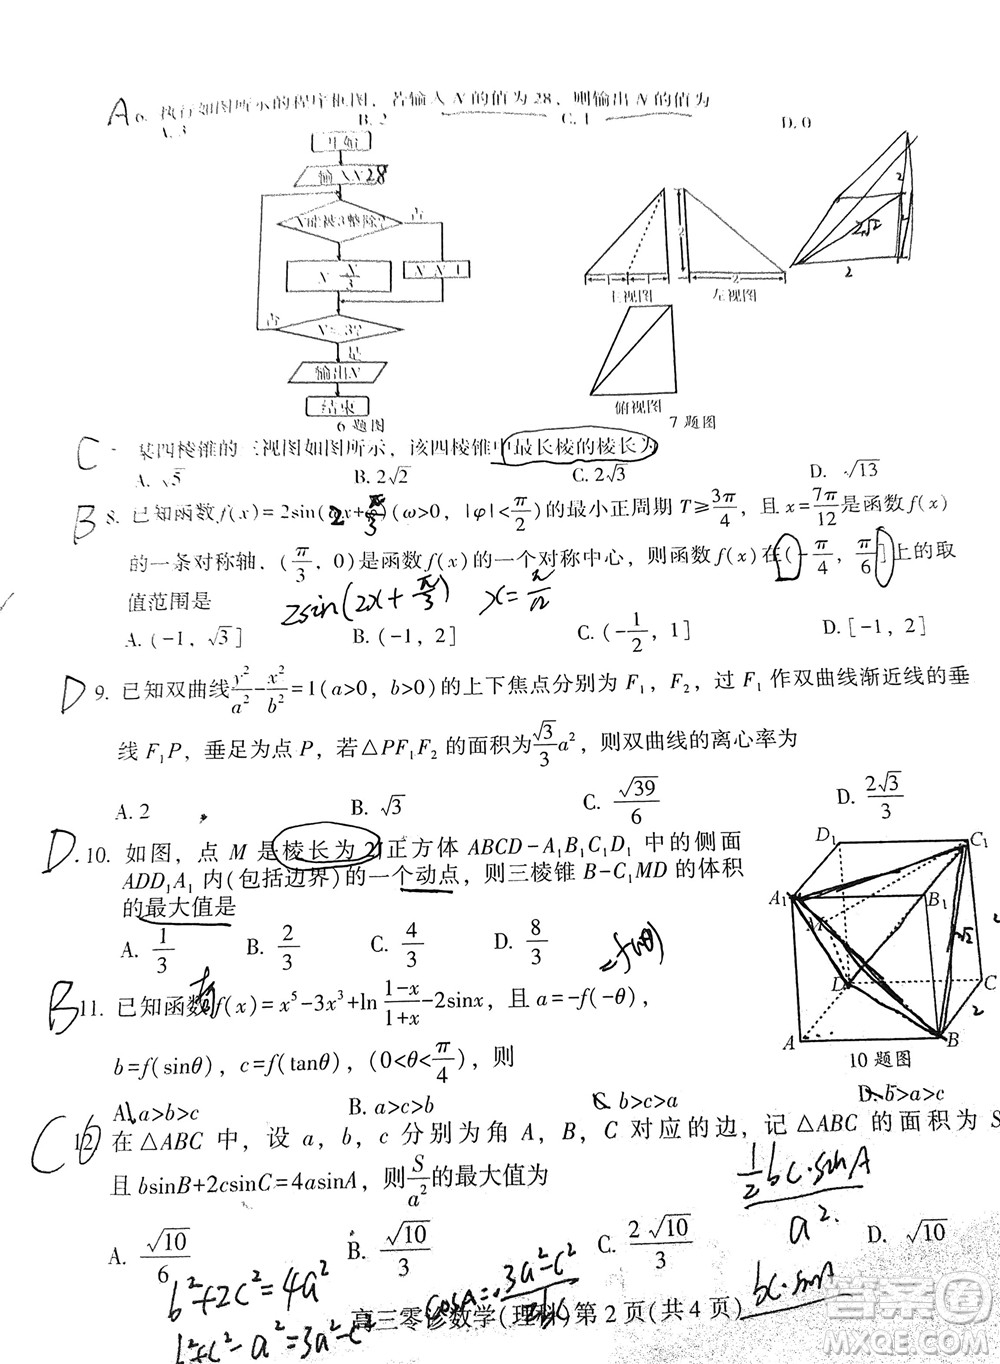 A 6. 执行如图所示的程序框图, 若输入 N 的值为 28, 则输出 N 的值为
A. 3 B. 2 C. 1 D. 0
开始
输入N 28
N能被3整除?
否
N=N/3
N=N-1
否
N≤3?
是
输出N
结束
6 题图
2
1 1 2
主视图 左视图
俯视图
7 题图
2
2√2
2
C 某四棱锥的三视图如图所示, 该四棱锥中最长棱的棱长为
A. √5 B. 2√2 C. 2√3 D. √13
B 8. 已知函数f(x)=2sin(ωx+φ)(ω>0, |φ|<π/2)的最小正周期 T≥3π/4, 且 x=7π/12是函数f(x)
的一条对称轴, (π/3, 0)是函数 f(x)的一个对称中心, 则函数 f(x)在(-π/4, π/6]上的取
值范围是 2sin(2x+π/3)
A. (-1, √3] B. (-1, 2] C. (-1/2, 1] D. [-1, 2]
D 9. 已知双曲线y²/a²-x²/b²=1(a>0, b>0)的上下焦点分别为 F₁, F₂, 过 F₁ 作双曲线渐近线的垂
线 F₁P, 垂足为点 P, 若△PF₁F₂ 的面积为√3/3a², 则双曲线的离心率为
A. 2 B. √3 C. √39/6 D. 2√3/3
D. 10. 如图, 点 M 是棱长为 2 正方体 ABCD-A₁B₁C₁D₁ 中的侧面
ADD₁A₁ 内(包括边界)的一个动点, 则三棱锥 B-C₁MD 的体积
的最大值是
A. 1/3 B. 2/3 C. 4/3 D. 8/3
D₁ C₁
A₁ B₁
M
D C
A B
2
10 题图
=f(θ)
B 11. 已知函数f(x)=x⁵-3x³+ln(1-x)/(1+x)-2sinx, 且 a=-f(-θ),
b=f(sinθ), c=f(tanθ), (0<θ<π/4), 则
A. a>b>c B. a>c>b C. c>b>a D. b>a>c
C 12. 在 △ABC 中, 设 a, b, c 分别为角 A, B, C 对应的边, 记 △ABC 的面积为 S
且 bsinB+2csinC=4asinA, 则S/a²的最大值为
½bc·sinA/a²
A. √10/6 B. √10/3 C. 2√10/3 D. √10
b²+2c²=4a²
b²+c²-a²=3a²-c²
cosA=3a²-c²/2bc
bc·sinA
高三零诊数学(理科)第 2 页(共 4 页)
答案圈
MXQE.COM